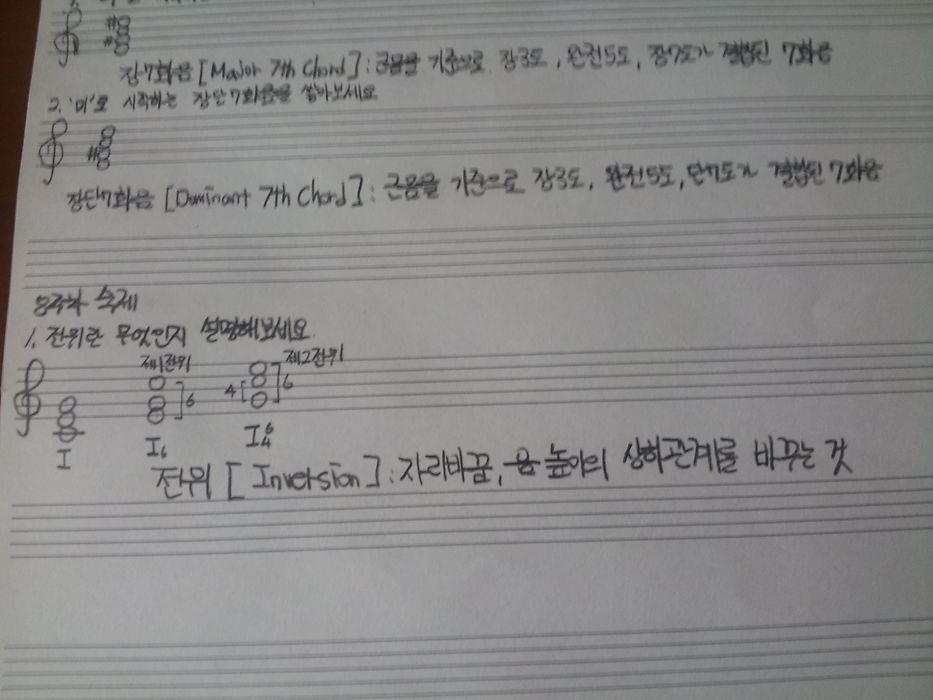 장7화음 [Major 7th Chord] : 근음을 기준으로 장3도, 완전5도, 장7도가 결합된 7화음
2. '미'로 시작하는 장단7화음을 쌓아보세요
장단7화음 [Dominant 7th Chord] : 근음을 기준으로 장3도, 완전5도, 단7도가 결합된 7화음
8주차 숙제
1. 전위란 무엇인지 설명해보세요.
제1전위 제2전위
6 4 6
I I6 I6 4
전위 [Inversion] : 자리바꿈, 음 높이의 상하관계를 바꾸는 것